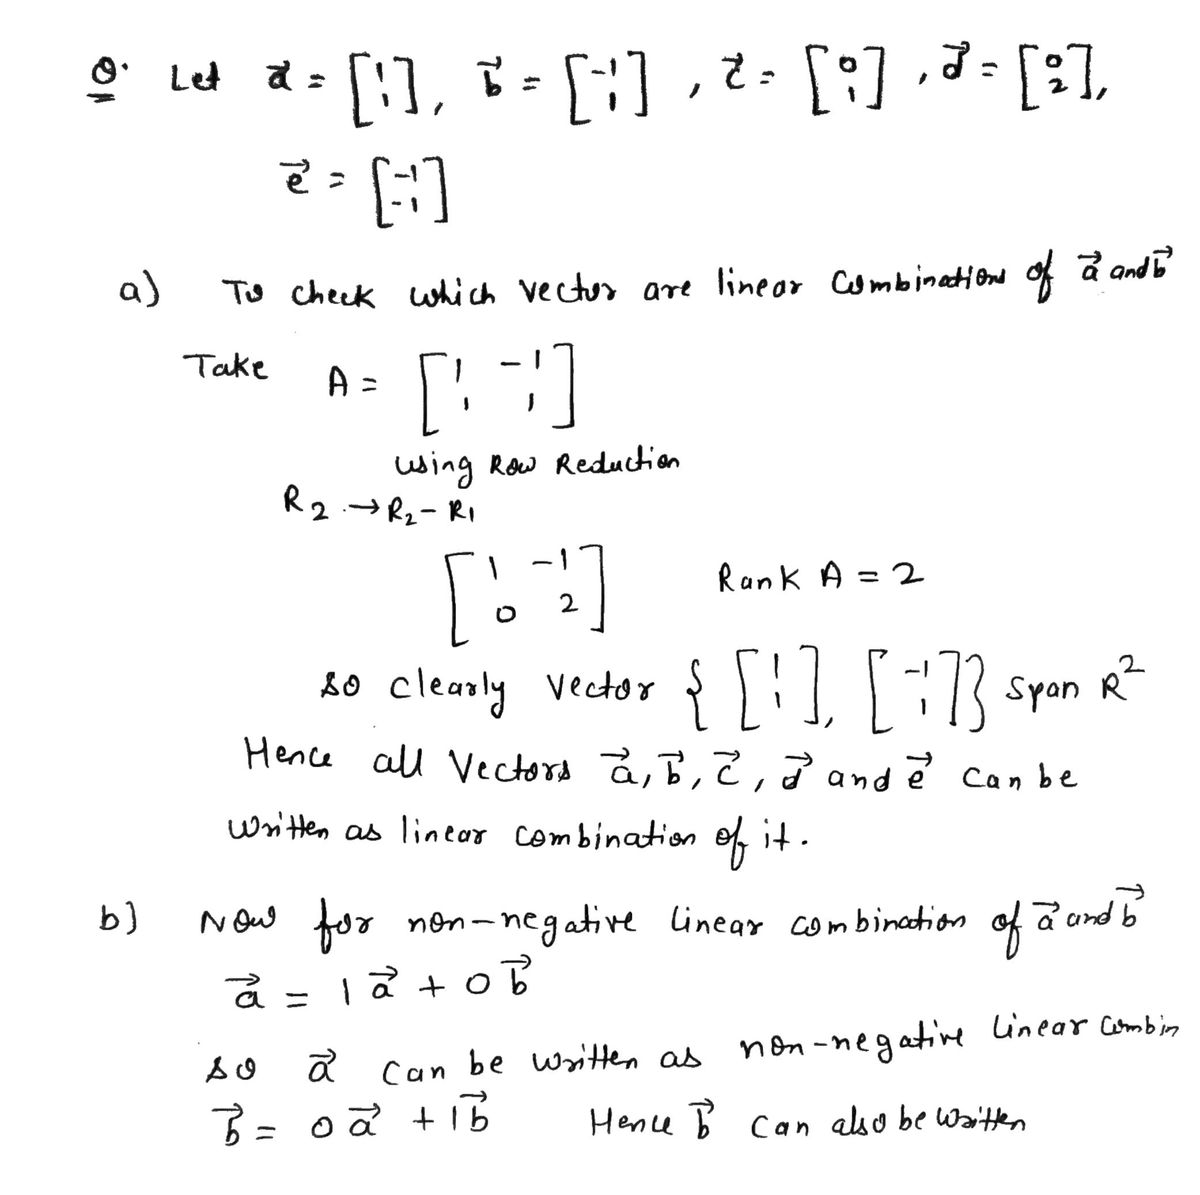 Q. Let a⃗ = [1 1], b⃗ = [-1 1], c⃗ = [0 1], d⃗ = [0 2],
e⃗ = [-1 -1]
a) To check which vector are linear combinations of a⃗ and b⃗
Take A = [1 -1
1 1]
using Row Reduction
R2 → R2 - R1
[1 -1
0 2] Rank A = 2
so clearly vector { [1 1], [-1 1] } span R²
Hence all Vectors a⃗, b⃗, c⃗, d⃗ and e⃗ can be
written as linear combination of it.
b) Now for non-negative linear combination of a⃗ and b⃗
a⃗ = 1 a⃗ + 0 b⃗
so a⃗ can be written as non-negative linear combin
b⃗ = 0 a⃗ + 1 b⃗ Hence b⃗ can also be written